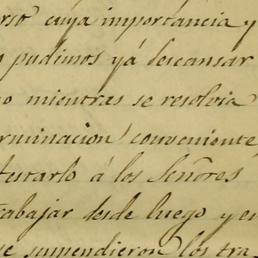 erso cuya importancia y
pudimos yá descansar
o mientras se resolvia
erminacion conveniente
tutarlo á los Señores
rabajar desde luego y en
se suspendieron los tra